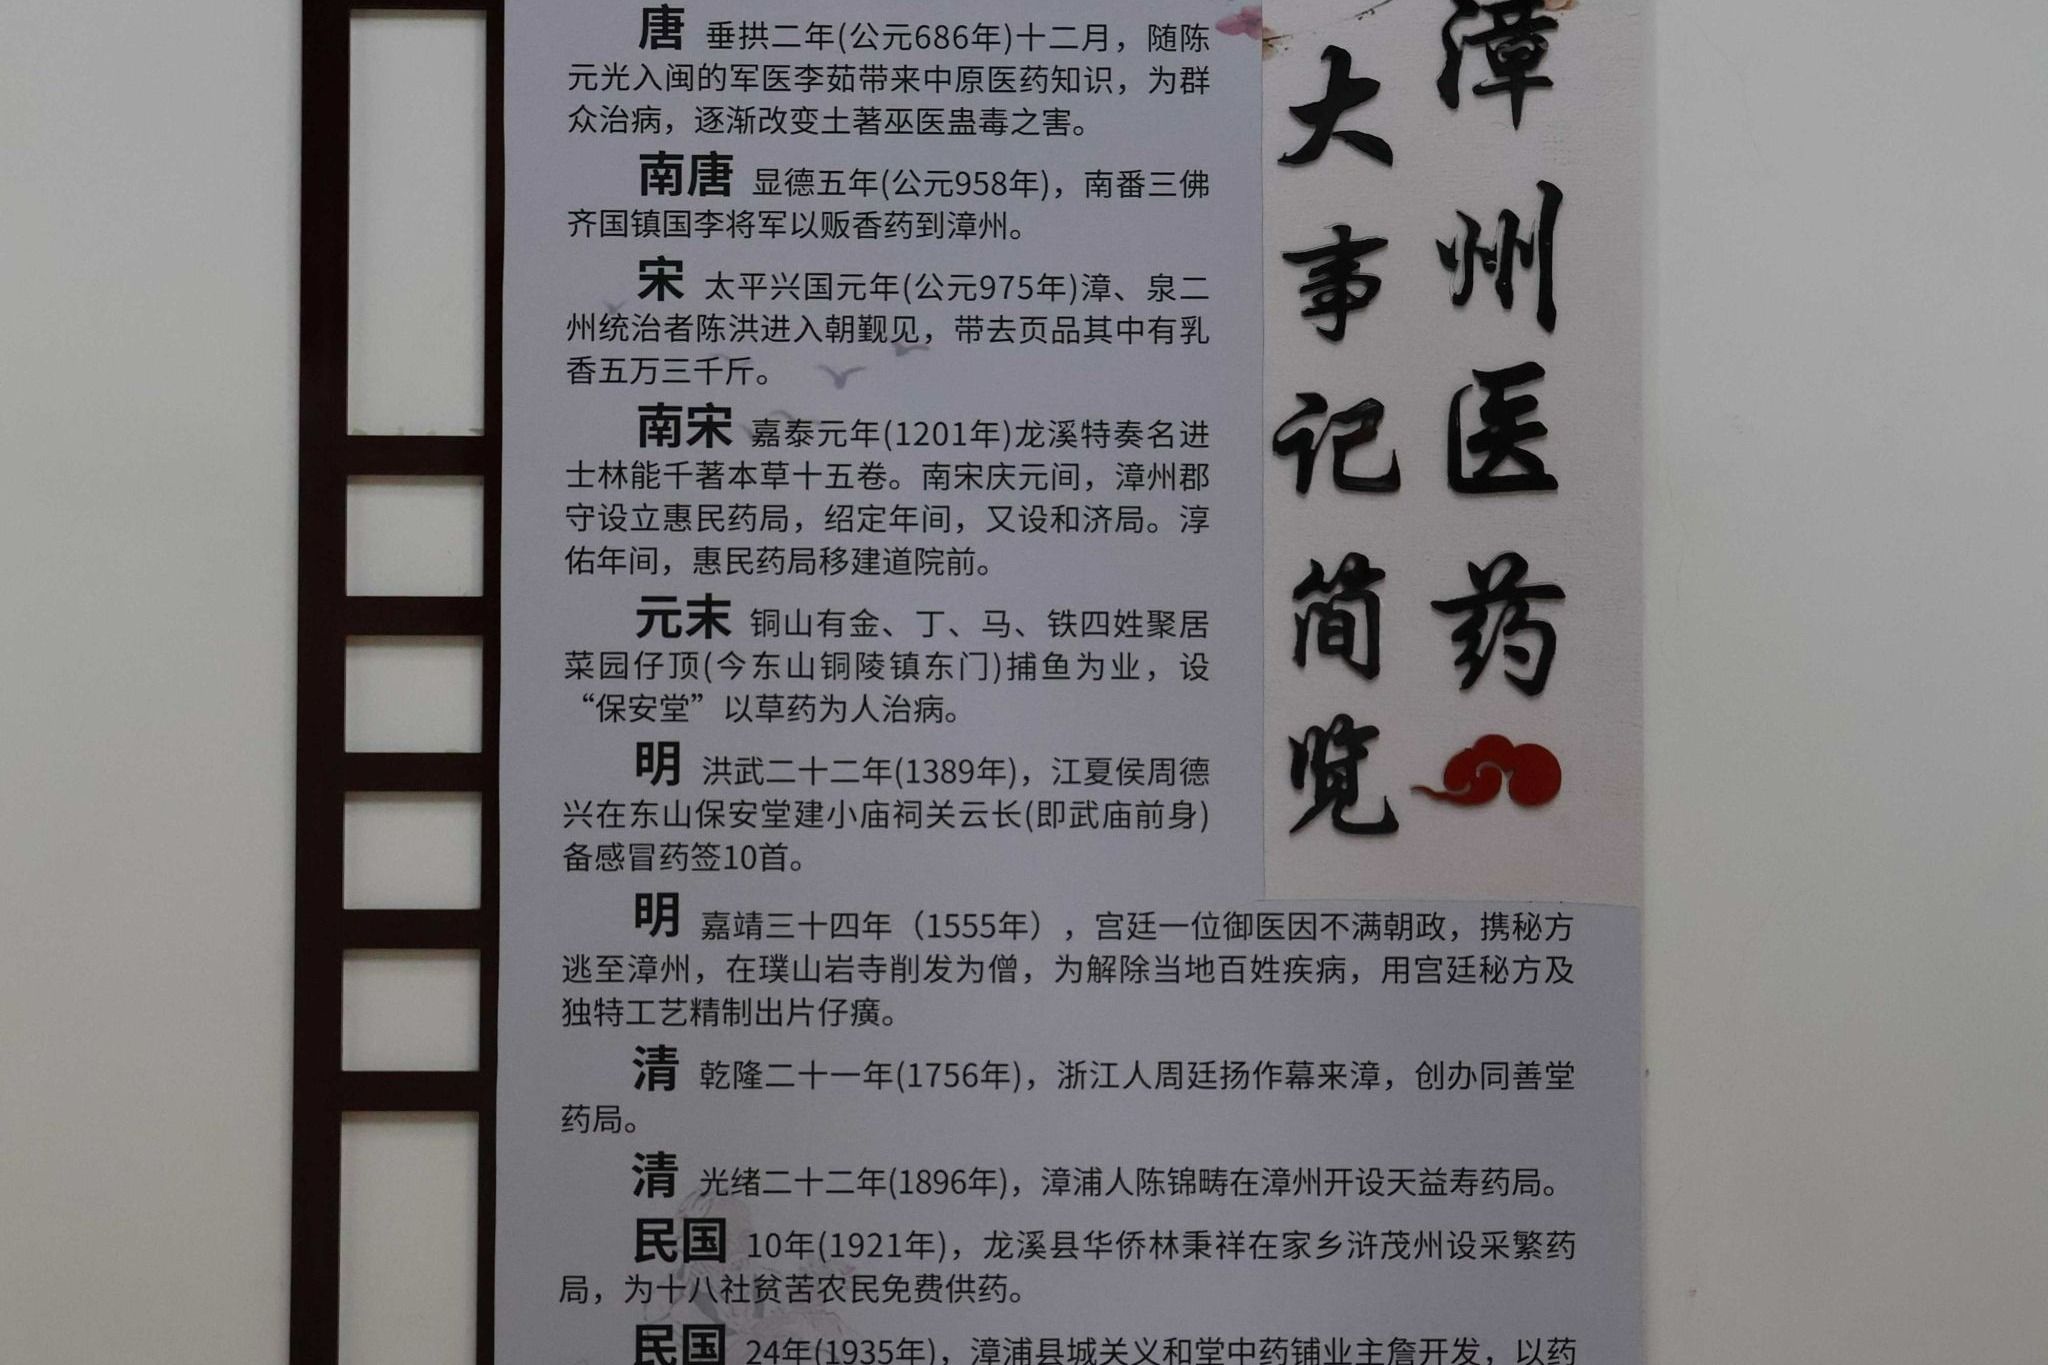 漳州医药
大事记简览
唐 垂拱二年(公元686年)十二月，随陈
元光入闽的军医李茹带来中原医药知识，为群
众治病，逐渐改变土著巫医蛊毒之害。
南唐 显德五年(公元958年)，南番三佛
齐国镇国李将军以贩香药到漳州。
宋 太平兴国元年(公元975年)漳、泉二
州统治者陈洪进入朝觐见，带去页品其中有乳
香五万三千斤。
南宋 嘉泰元年(1201年)龙溪特奏名进
士林能千著本草十五卷。南宋庆元间，漳州郡
守设立惠民药局，绍定年间，又设和济局。淳
佑年间，惠民药局移建道院前。
元末 铜山有金、丁、马、铁四姓聚居
菜园仔顶(今东山铜陵镇东门)捕鱼为业，设
“保安堂”以草药为人治病。
明 洪武二十二年(1389年)，江夏侯周德
兴在东山保安堂建小庙祠关云长(即武庙前身)
备感冒药签10首。
明 嘉靖三十四年（1555年），宫廷一位御医因不满朝政，携秘方
逃至漳州，在璞山岩寺削发为僧，为解除当地百姓疾病，用宫廷秘方及
独特工艺精制出片仔癀。
清 乾隆二十一年(1756年)，浙江人周廷扬作幕来漳，创办同善堂
药局。
清 光绪二十二年(1896年)，漳浦人陈锦畴在漳州开设天益寿药局。
民国 10年(1921年)，龙溪县华侨林秉祥在家乡浒茂州设采繁药
局，为十八社贫苦农民免费供药。
民国 24年(1935年)，漳浦县城关义和堂中药铺业主詹开发，以药